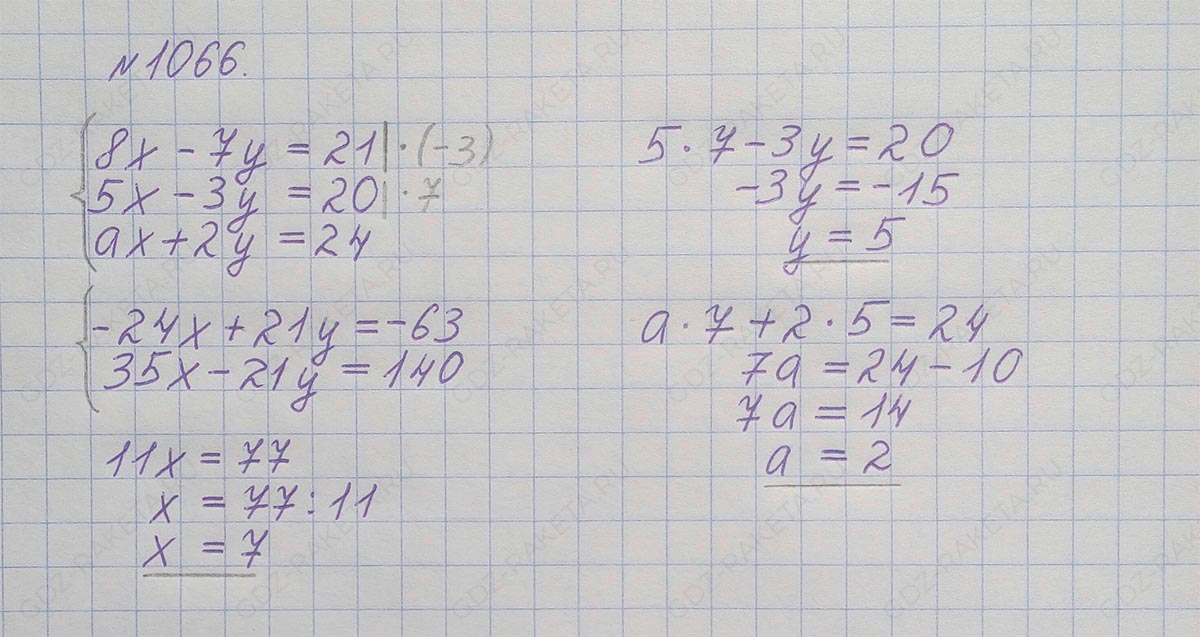 №1066.
8x - 7y = 21 | · (-3)
5x - 3y = 20 | · 7
ax + 2y = 24
-24x + 21y = -63
35x - 21y = 140
11x = 77
x = 77 : 11
x = 7
5 · 7 - 3y = 20
-3y = -15
y = 5
a · 7 + 2 · 5 = 24
7a = 24 - 10
7a = 14
a = 2
GDZ-RAKETA.RU